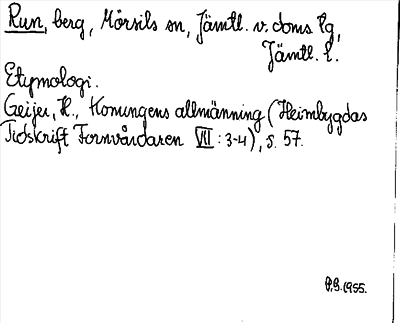 Run, berg, Mörsils sn, Jämtl. v. doms Pg,
Jämtl. l.
Etymologi.
Geijer, H., Konungens allmänning (Heimbygdas
Tidskrift Fornvårdaren VII : 3-4), s. 57.
P.G. 1955.